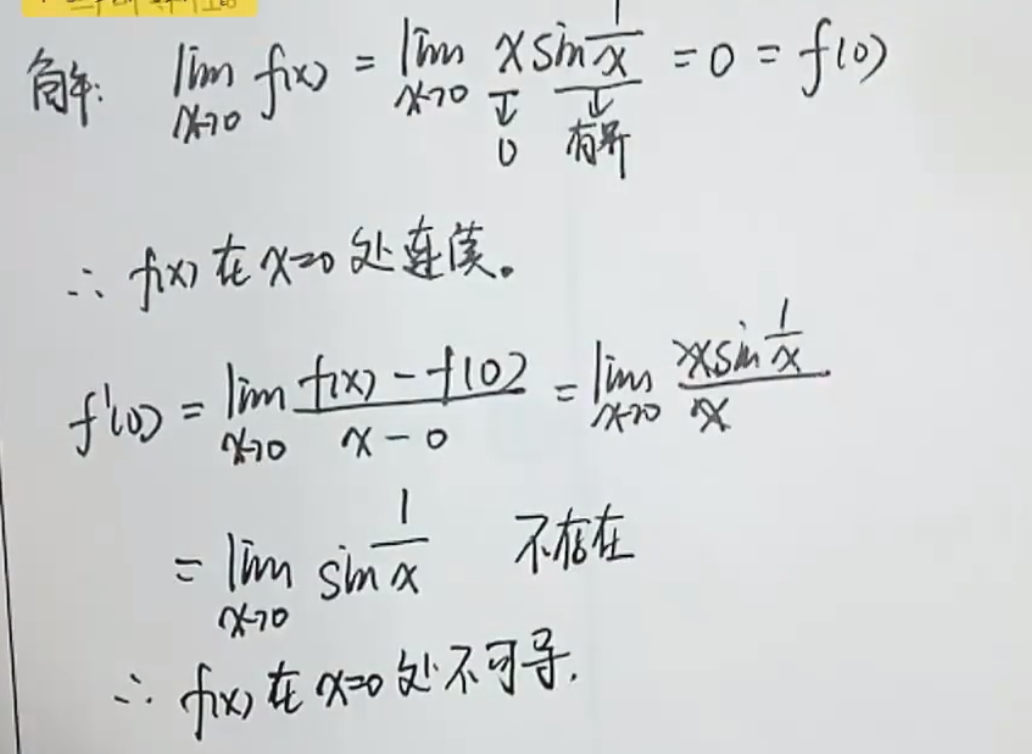 解: lim x→0 f(x) = lim x→0 x sin 1/x = 0 = f(0)
↓ ↓
0 有界
∴ f(x) 在 x=0 处连续。
f'(0) = lim x→0 (f(x) - f(0))/(x - 0) = lim x→0 (x sin 1/x)/x
= lim x→0 sin 1/x 不存在
∴ f(x) 在 x=0 处不可导.